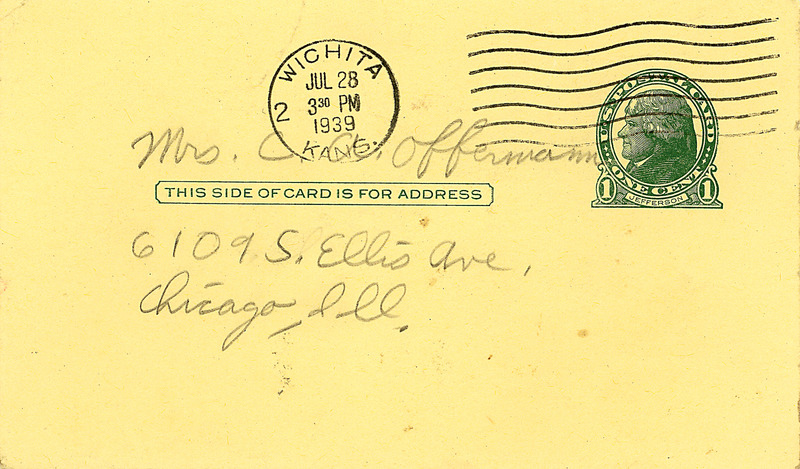 WICHITA
JUL 28
3 30 PM
1939
2
KANS.
U.S. POSTAL CARD
ONE CENT
1 JEFFERSON 1
Mrs. C. A. Offermann
THIS SIDE OF CARD IS FOR ADDRESS
6109 S. Ellis Ave.,
Chicago, Ill.